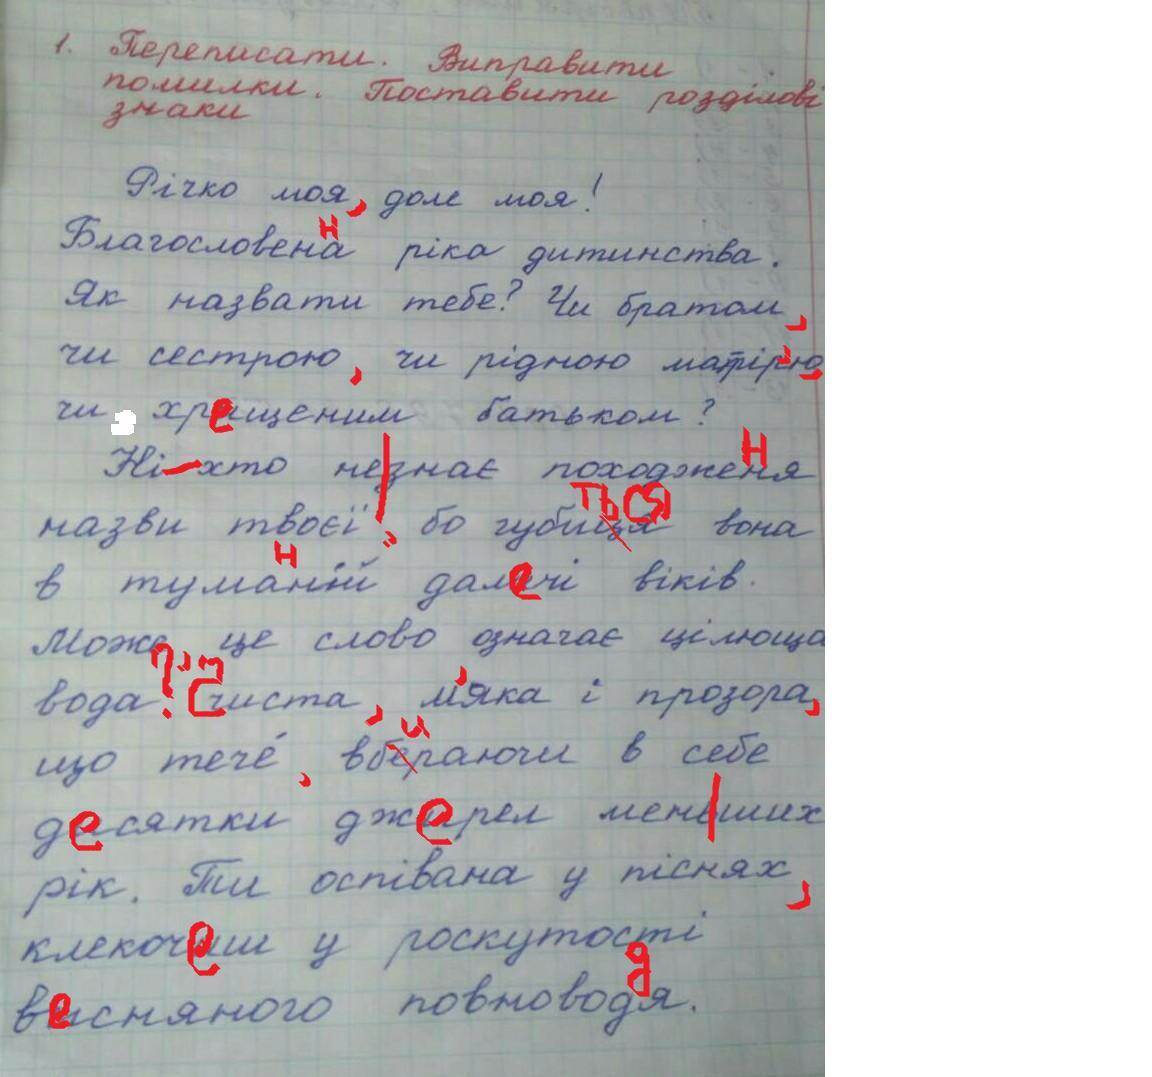 1. Переписати. Виправити
помилки. Поставити розділові
знаки
Річко моя, доле моя!
н
Благословена ріка дитинства.
Як назвати тебе? Чи братом,
чи сестрою, чи рідною матір'ю,
чи хрещеним батьком?
Н
Ні-хто не|знає походженя
ться
назви твоєї, бо губиця вона
н
в туманій далечі віків.
Може це слово означає цілюща
вода? Чиста, м'яка і прозора,
и
що тече, вбераючи в себе
десятки джерел мен|ших
рік. Ти оспівана у піснях,
клекочеш у роскутості
весняного повноводдя.